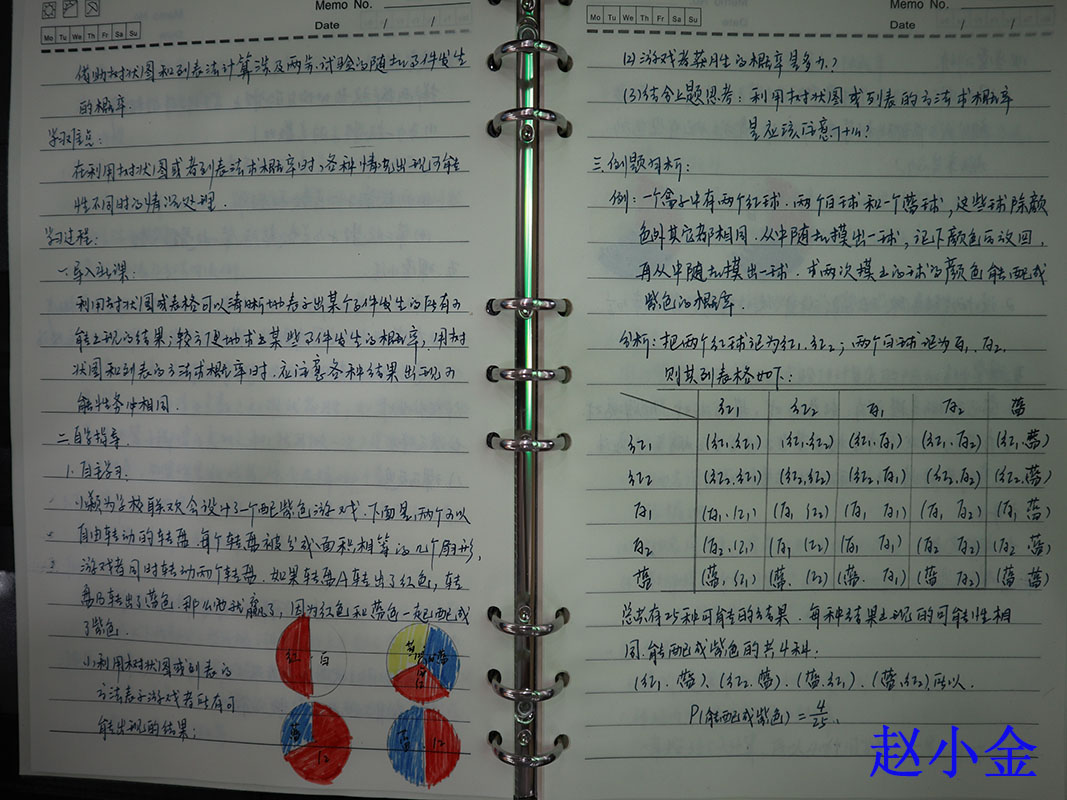 Memo No.
Mo Tu We Th Fr Sa Su
Date / /
借助树状图和列表法计算涉及两步试验的随机事件发生
的概率.
学习难点:
在利用树状图或者列表法求概率时,各种情况出现可能
性不同时的情况处理.
学习过程:
一.导入新课:
利用树状图或表格可以清晰地表示出某个事件发生的所有可
能出现的结果;较方便地求出某些事件发生的概率,用树
状图和列表的方法求概率时.应注意各种结果出现可
能性务必相同.
二.自学指导.
1.自主学习:
小颖为学校联欢会设计了一个配紫色游戏.下面是两个可以
自由转动的转盘.每个转盘被分成面积相等的几个扇形,
游戏者同时转动两个转盘.如果转盘A转出了红色,转
盘B转出了蓝色.那么他就赢了,因为红色和蓝色一起配成
了紫色.
利用树状图或列表的
方法表示游戏者所有可
能出现的结果;
红 白
黄 蓝
红
蓝
红
蓝 红
Memo No.
Mo Tu We Th Fr Sa Su
Date / /
(2)游戏者获胜的概率是多少?
(3)结合上题思考:利用树状图或列表的方法求概率
是应该注意什么?
三.例题解析:
例:一个盒子中有两个红球.两个白球和一个蓝球,这些球除颜
色外其它都相同.从中随机摸出一球,记下颜色后放回.
再从中随机摸出一球.求两次摸出的球的颜色能配成
紫色的概率.
分析:把两个红球记为红1.红2;两个白球记为白1.白2.
则其列表格如下:
红1 红2 白1 白2 蓝
红1 (红1.红1) (红1.红2) (红1.白1) (红1.白2) (红1.蓝)
红2 (红2.红1) (红2.红2) (红2.白1) (红2.白2) (红2.蓝)
白1 (白1.红1) (白1 红2) (白1 白1) (白1 白2) (白1 蓝)
白2 (白2.红1) (白1 红2) (白1 白1) (白2 白2) (白2 蓝)
蓝 (蓝.红1) (蓝. 红2) (蓝. 白1) (蓝 白2) (蓝 蓝)
总共有25种可能的结果.每种结果出现的可能性相
同.能配成紫色的共4种:
(红1.蓝)、(红2.蓝).(蓝.红1).(蓝.红2),所以.
P(能配成紫色)=4/25.
赵小金